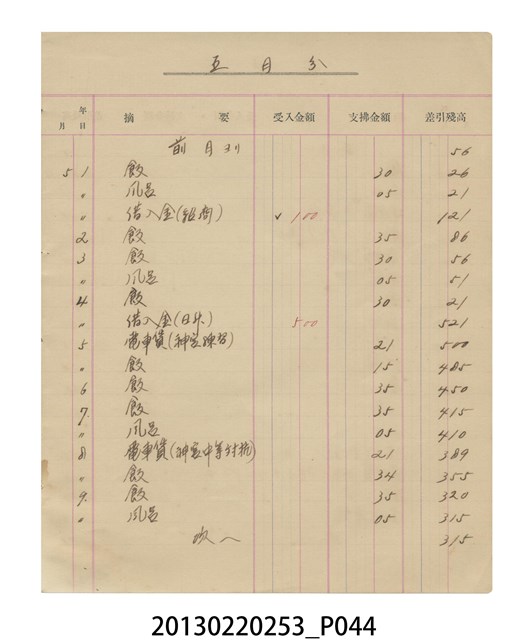 五月分
年
月 日 摘 要 受入金額 支拂金額 差引残高
前月ヨリ 56
5 1 飯 30 26
〃 風呂 05 21
〃 借入金( ) ✓ 100 121
2 飯 35 86
3 飯 30 56
〃 風呂 05 51
4 飯 30 21
〃 借入金(日 ) 500 521
5 電車賃(神宮練習) 21 500
〃 飯 15 485
6 飯 35 450
7 飯 35 415
〃 風呂 05 410
8 電車賃(神宮中等対抗) 21 389
〃 飯 34 355
9 飯 35 320
〃 風呂 05 315
次へ 315
20130220253_P044